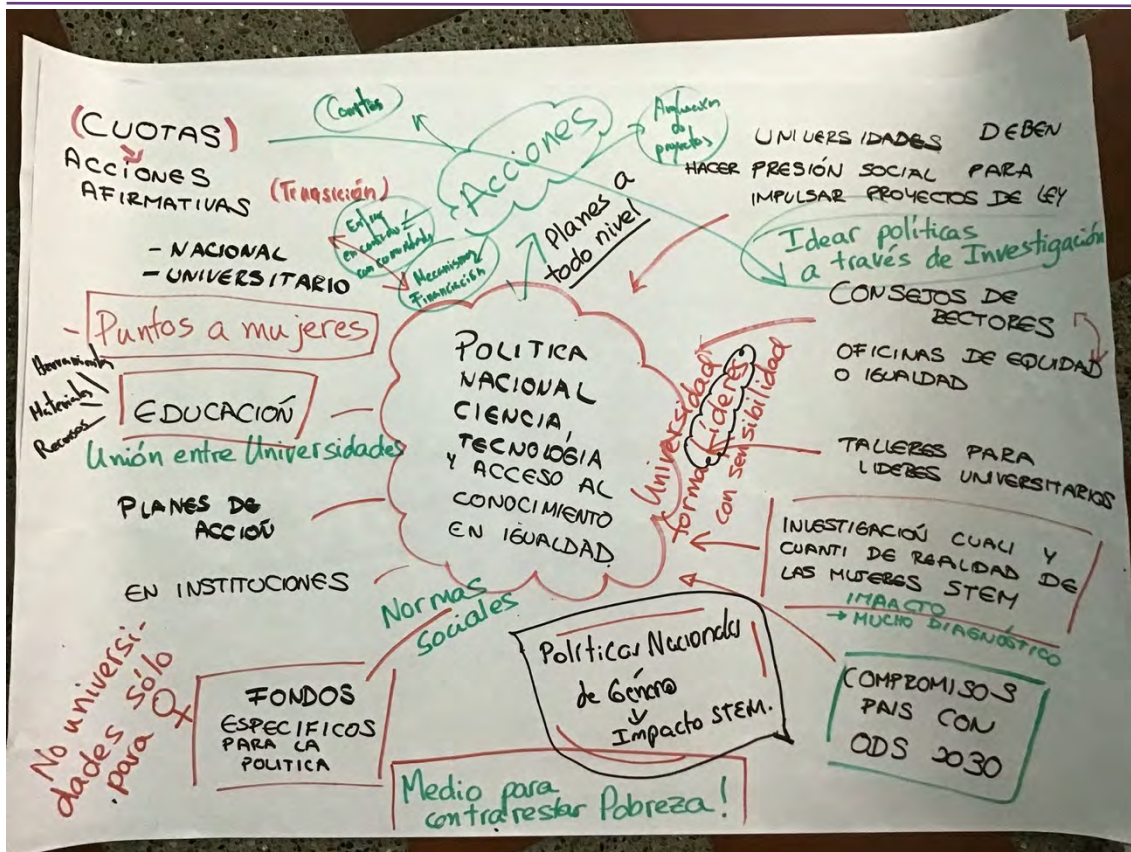 (CUOTAS)
ACCIONES
AFIRMATIVAS
(Transición)
- NACIONAL
- UNIVERSITARIO
- Puntos a mujeres
Herramientas
Materiales
Recursos
EDUCACIÓN
Unión entre Universidades
PLANES DE
ACCIÓN
EN INSTITUCIONES
Normas
Sociales
No universi-
dades sólo
para ♀
FONDOS
ESPECIFICOS
PARA LA
POLITICA
Acciones
Ampliación
de
proyectos
en contacto
con comunidades
Mecanismos
Financiación
Planes a
todo nivel
POLITICA
NACIONAL
CIENCIA,
TECNOLOGIA
Y ACCESO AL
CONOCIMIENTO
EN IGUALDAD
Universidad
forma líderes
con sensibilidad
Políticas Nacionales
de Género
Impacto STEM.
Medio para
contrarrestar Pobreza!
UNIVERSIDADES DEBEN
HACER PRESIÓN SOCIAL PARA
IMPULSAR PROYECTOS DE LEY
Idear políticas
a través de Investigación
CONSEJOS DE
RECTORES
OFICINAS DE EQUIDAD
O IGUALDAD
TALLERES PARA
LIDERES UNIVERSITARIOS
INVESTIGACIÓN CUALI Y
CUANTI DE REALIDAD DE
LAS MUJERES STEM
IMPACTO
→ MUCHO DIAGNÓSTICO
COMPROMISOS
PAIS CON
ODS 2030